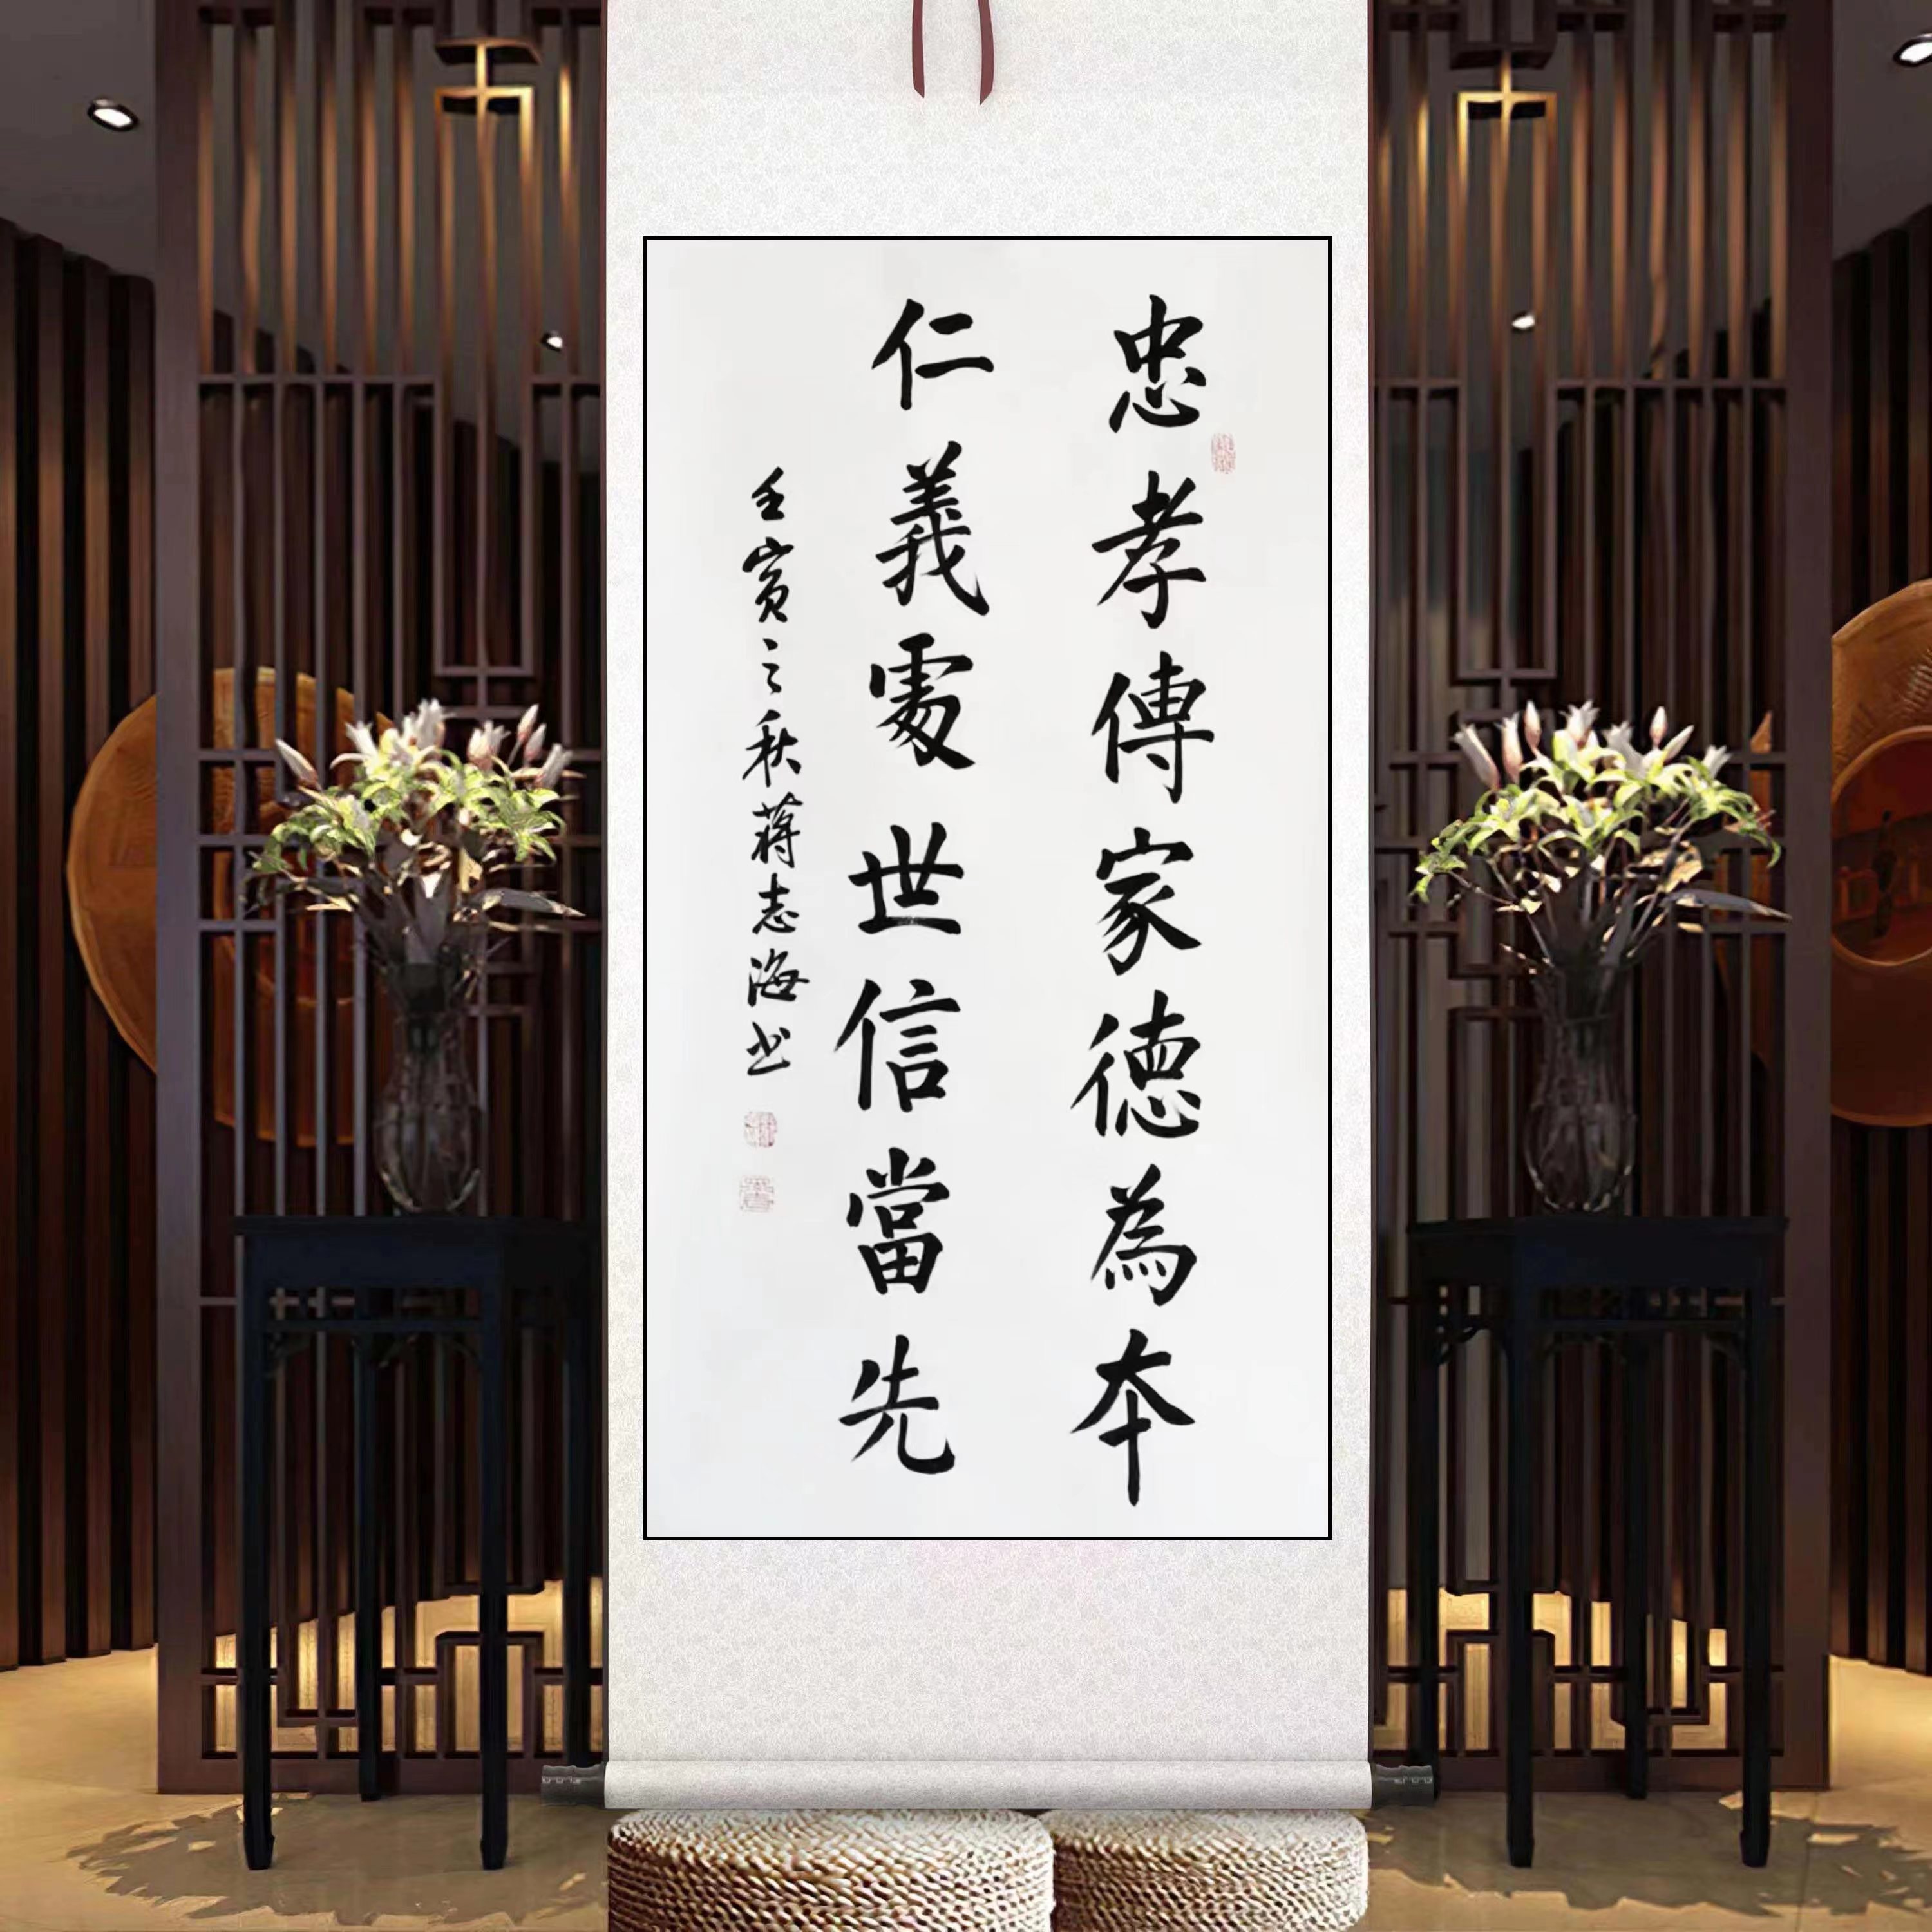 忠孝傳家德為本
仁義處世信當先
壬寅之秋蔣志海书